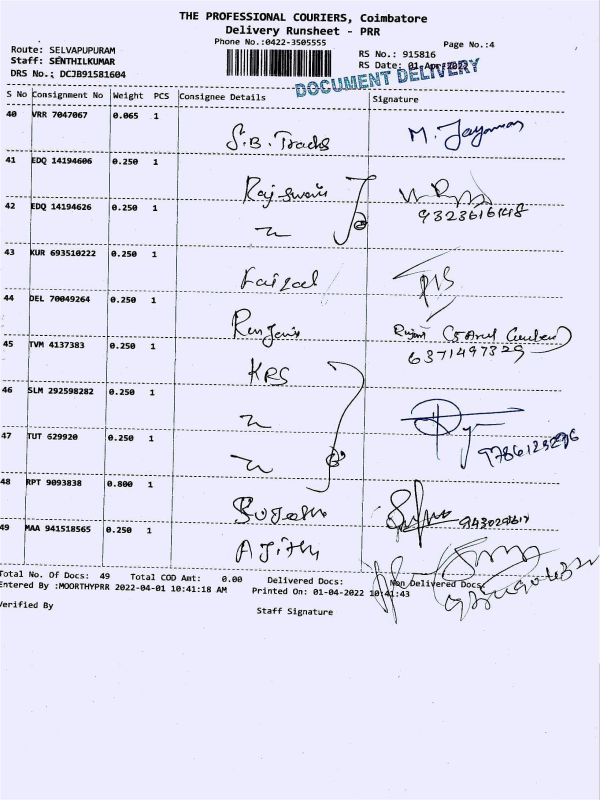 THE PROFESSIONAL COURIERS, Coimbatore
Delivery Runsheet - PRR
Phone No.:0422-3505555
Page No.:4
Route: SELVAPUPURAM
Staff: SENTHILKUMAR
DRS No.: DCJB91581604
RS No.: 915816
RS Date: 01-Apr-2022
DOCUMENT DELIVERY
S No Consignment No Weight PCS Consignee Details Signature
40 VRR 7047067 0.065 1 S.B. Tracks M. Jayaraman
41 EDQ 14194606 0.250 1 Rajeswari
9323616148
42 EDQ 14194626 0.250 1
43 KUR 693510222 0.250 1 Faizal
44 DEL 70049264 0.250 1
6371497329
45 TVM 4137383 0.250 1 KRS
46 SLM 292598282 0.250 1
47 TUT 629920 0.250 1
48 RPT 9093838 0.800 1
49 MAA 941518565 0.250 1 Ajith
Total No. Of Docs: 49 Total COD Amt: 0.00 Delivered Docs: Non Delivered Docs:
Entered By :MOORTHYPRR 2022-04-01 10:41:18 AM Printed On: 01-04-2022 10:41:43
Verified By
Staff Signature